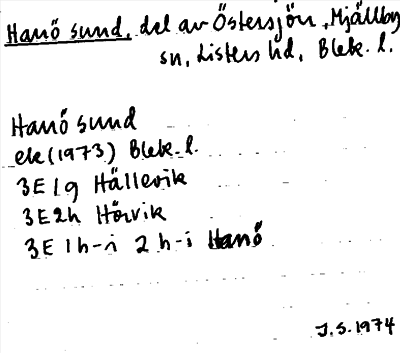 Hanö sund, del av Östersjön, Mjällby
sn, Listers hd, Blek. l.
Hanö sund
ek (1973) Blek. l.
3E 1g Hällevik
3E 2h Hörvik
3E 1h-i 2h-i Hanö
J.S. 1974